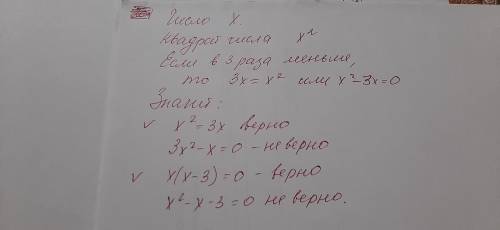 Число х.
Квадрат числа х²
Если в 3 раза меньше,
то 3х = х² или х²-3х=0
Значит:
v х² = 3х верно
3х²-х=0 - неверно
v х(х-3)=0 - верно
х²-х-3=0 неверно.